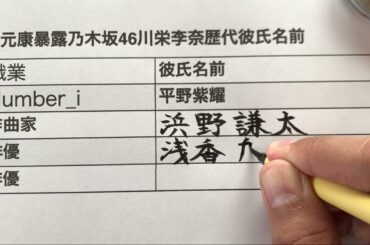 元康暴露乃木坂46川栄李奈歴代彼氏名前
職業 彼氏名前
Number_i 平野紫耀
作曲家 浜野謙太
俳優 浅香九
俳優